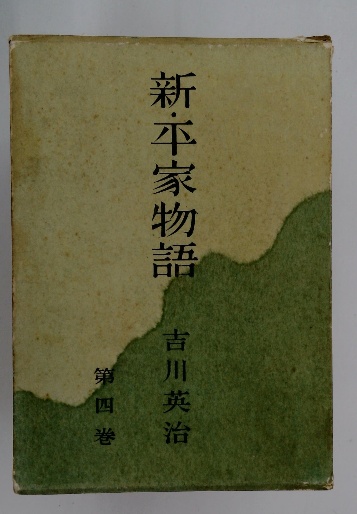 新・平家物語
吉川英治
第四巻